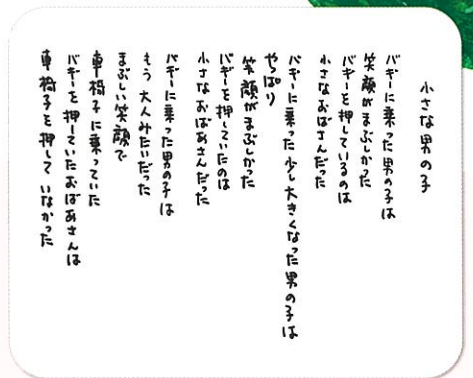 小さな男の子
バギーに乗った男の子は
笑顔がまぶしかった
バギーを押しているのは
小さなおばさんだった
バギーに乗った少し大きくなった男の子は
やっぱり
笑顔がまぶしかった
バギーを押していたのは
小さなおばあさんだった
バギーに乗った男の子は
もう大人みたいだった
まぶしい笑顔で
車椅子に乗っていた
バギーを押していたおばあさんは
車椅子を押していなかった